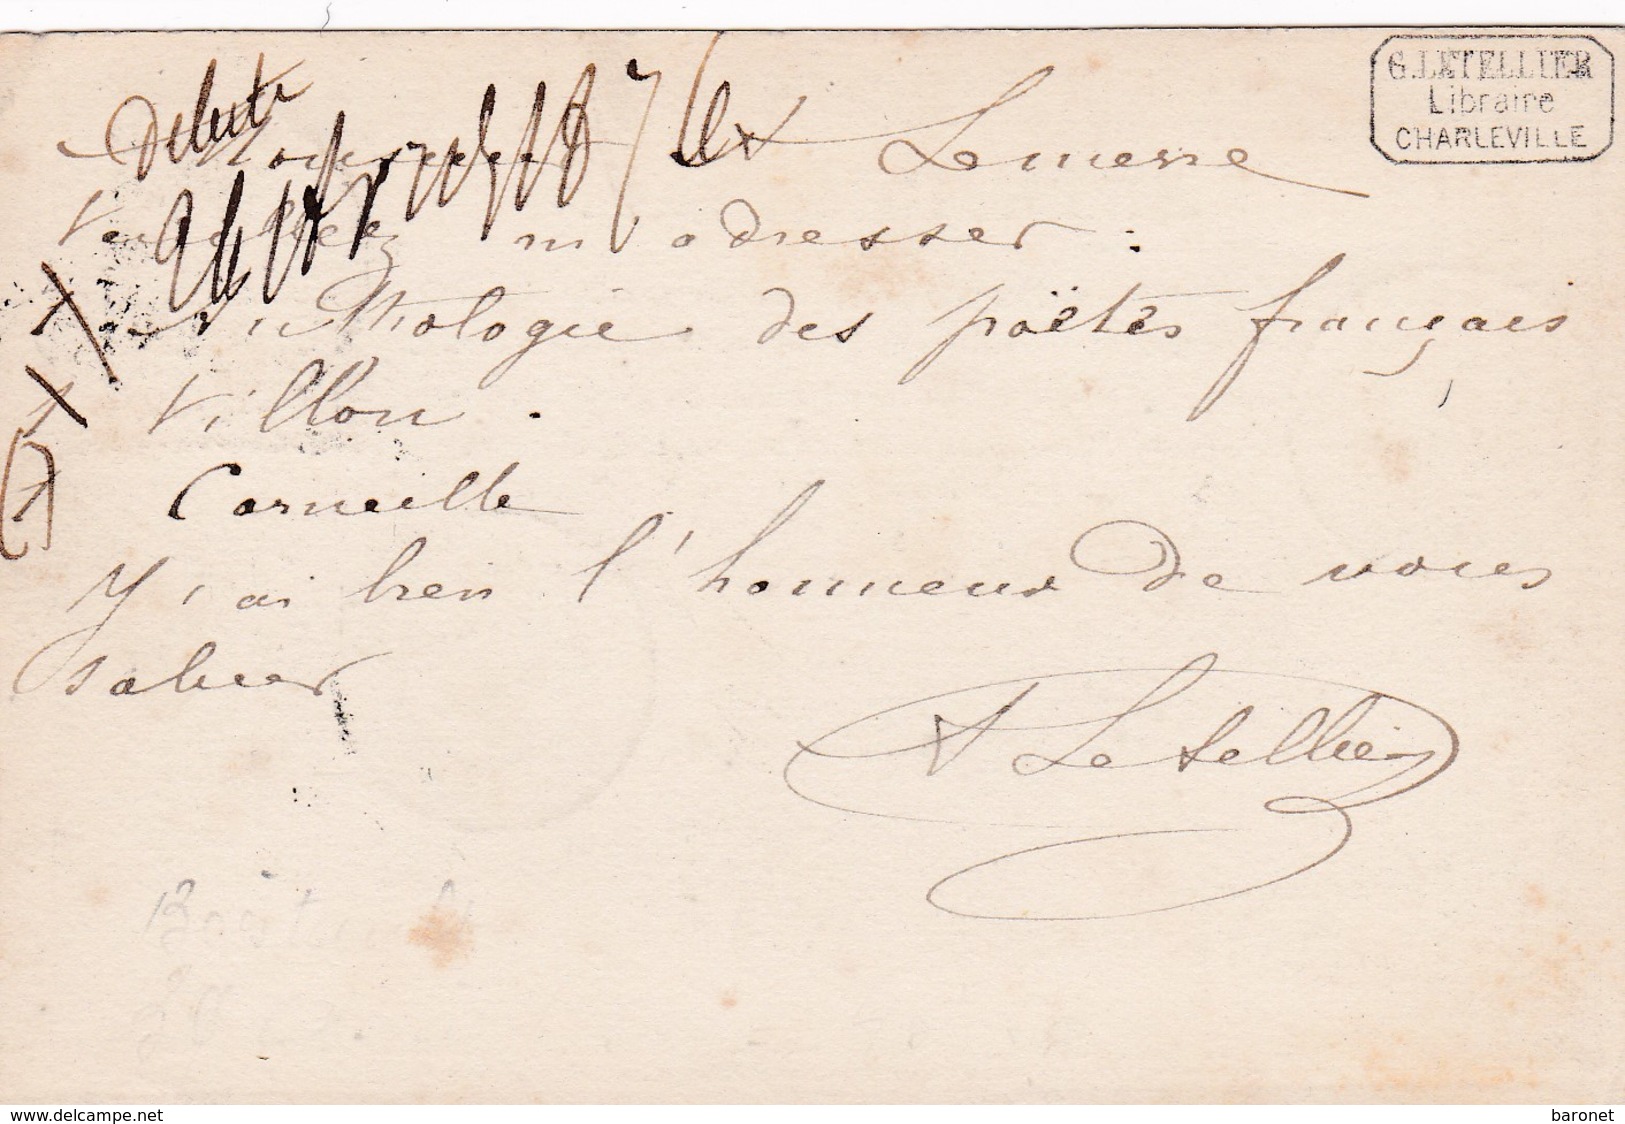 G. LETELLIER
Libraire
CHARLEVILLE
Debité
Monsieur Lemerre
Veuillez m'adresser :
1 Anthologie des poëtes français
1 Villon .
1 Corneille
J'ai bien l'honneur de vous
saluer
Letellier
www.delcampe.net
baronet